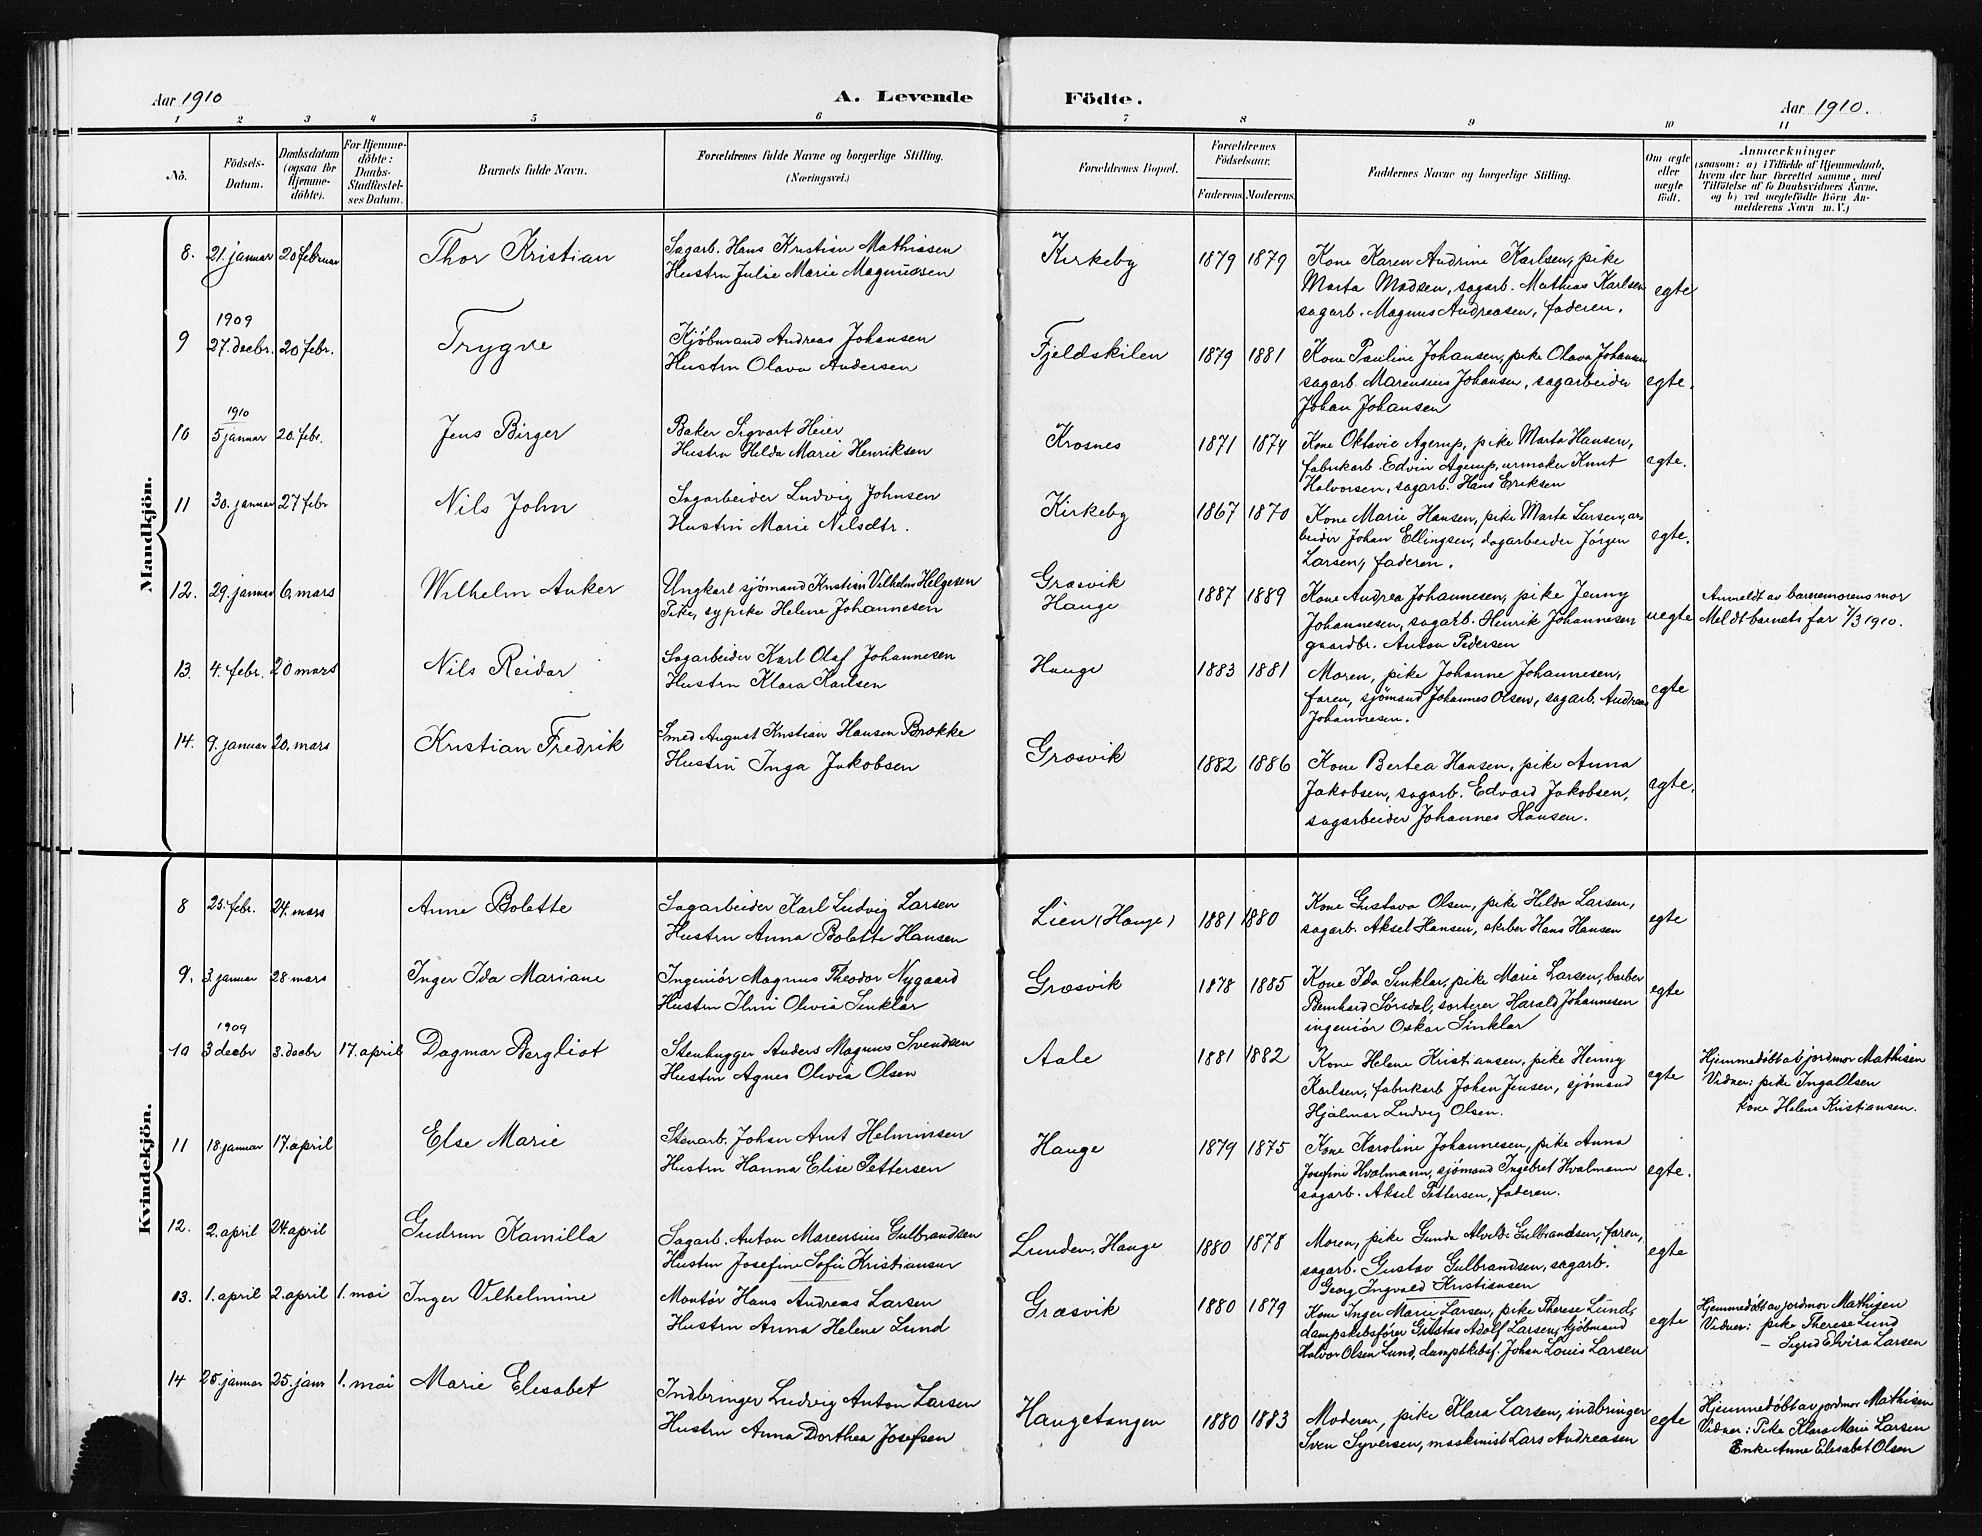 Aar 1910
A. Levende Födte.
Aar 1910.
1 2 3 4 5 6 7 8 9 10 11
No.
Födsels-Datum.
Daabsdatum (ogsaa for Hjemmedöbte).
For Hjemmedöbte: Daabs-Stadfæstelses Datum.
Barnets fulde Navn.
Forældrenes fulde Navne og borgerlige Stilling.
(Næringsvei.)
Forældrenes Bopæl.
Forældrenes Födselsaar.
Faderens. Moderens.
Faddernes Navne og borgerlige Stilling.
Om ægte eller uægte födt.
Anmærkninger
(saasom: a) i Tilfælde af Hjemmedaab,
hvem der har forrettet samme, med
Tilföielse af to Daabsvidners Navne,
og b) ved uægtefödte Börn An-
melderens Navn m. V.)
Mandkjön.
8. 21. januar 20 februar Thor Kristian
Sagarb. Hans Kristian Mathiasen
Hustru Julie Marie Magnussen
Kirkeby 1879 1879
Kone Karen Andrine Karlsen, pike
Marta Madsen, sagarb. Mathias Karlsen
sagarb. Magnus Andreasen, faderen.
egte
1909
9 27. decbr. 20 febr. Trygve
Kjöbmand Andreas Johansen
Hustru Olava Andersen
Fjeldskilen 1879 1881
Kone Pauline Johansen, pike Olava Johansen
sagarb. Marensius Johansen, sagarbeider
Johan Johansen
egte.
1910
10 5 januar 20. febr. Jens Birger
Baker Sigvart Heier
Hustru Hilda Marie Henriksen
Krosnes 1871 1874
Kone Oktavie Agerup, pike Marta Hansen,
fabrikarb. Edvin Agerup, urmaker Knut
Halvorsen, sagarb. Hans Eriksen
egte.
11 30. januar 27 febr Nils John
Sagarbeider Ludvig Johnsen
Hustru Marie Nilsdtr.
Kirkeby 1867 1870
Kone Marie Hansen, pike Marta Larsen, ar-
beider Johan Ellingsen, sagarbeider Jörgen
Larsen, faderen.
egte.
12. 29. januar 6. mars Wilhelm Anker
Ungkarl sjömand Kristian Vilhelm Helgesen
Pike, sypike Helene Johannesen
Græsvik
Hauge
1887 1889
Kone Andrea Johannesen, pike Jenny
Johannesen, sagarb. Henrik Johannesen
gaardbr. Anton Pedersen
uegte
Anmeldt av barnemorens mor
Meldt barnets far 7/3 1910.
13. 4. febr. 20 mars Nils Reidar
Sagarbeider Karl Olaf Johannesen
Hustru Klara Karlsen
Hauge 1883 1881
Moren, pike Johanne Johannesen,
faren, sjömand Johannes Olsen, sagarb. Andreas
Johannesen.
egte
14. 9. januar 20. mars Kristian Fredrik
Smed August Kristian Hansen Brække
Hustru Inga Jakobsen
Græsvik 1882 1886
Kone Bertea Hansen, pike Anna
Jakobsen, sagarb. Edvard Jakobsen,
sagarbeider Johannes Hansen.
egte.
Kvindekjön.
8 25. febr. 24. mars Anne Bolette
Sagarbeider Karl Ludvig Larsen
Hustru Anna Bolette Hansen
Lien (Hauge) 1881 1880
Kone Gustava Olsen, pike Hilda Larsen,
sagarb. Aksel Hansen, skiber Hans Hansen
egte
9. 3. januar 28 mars Inger Ida Mariane
Ingeniör Magnus Theodor Nygaard
Hustru Ilmi Olivia Sinklar
Græsvik 1878 1885
Kone Ida Sinklar, pike Marie Larsen, barber
Bernhard Sørsdal, sorterer Harald Johannesen
ingeniör Oskar Sinklar
egte
1909
10 3 decbr 3. decbr 17. april Dagmar Bergliot
Stenhugger Anders Magnus Svendsen
Hustru Agnes Olivia Olsen
Aale 1881 1882
Kone Helene Kristiansen, pike Henny
Karlsen, fabrikarb Johan Jensen, sjömand
Hjalmar Ludvig Olsen.
egte
Hjemmedöbt av jordmor Mathisen
Vidner: pike Inga Olsen
kone Helene Kristiansen.
11 18. januar 17. april Else Marie
Stenarb. Johan Arnt Helminsen
Hustru Hanna Elise Pettersen
Hauge 1879 1875
Kone Karoline Johannesen, pike Anna
Josefine Hvalmann, sjömand Ingebret Hvalmann
sagarb. Aksel Pettersen, faderen.
egte.
12. 2. april 24. april Gudrun Kamilla
Sagarb. Anton Marensius Gulbrandsen
Hustru Josefine Sofie Kristiansen
Lunden, Hauge 1880 1878
Moren, pike Gunda Alvilde Gulbrandsen, faren,
sagarb. Gustav Gulbrandsen, sagarb.
Georg Ingvald Kristiansen
egte
13. 1. april 2. april 1. mai Inger Vilhelmine
Montör Hans Andreas Larsen
Hustru Anna Helene Lund
Græsvik 1880 1879
Kone Inger Marie Larsen, pike Therese Lund,
dampskibsförer Gustav Adolf Larsen, kjöbmand
Halvor Olsen Lund, dampskibsf. Johan Louis Larsen
egte
Hjemmedöbt av jordmor Mathisen
Vidner: pike Therese Lund
— Sigrid Elvira Larsen
14 25. januar 25. janr 1. mai Marie Elisabet
Indbringer Ludvig Anton Larsen
Hustru Anna Dorthea Josefsen
Haugetangen 1880 1883
Moderen, pike Klara Larsen, indbringer
Sven Syversen, maskinist Lars Andreasen
egte
Hjemmedöbt av jordmor Mathisen
Vidner: Pike Klara Marie Larsen
Enke Anne Elisabet Olsen